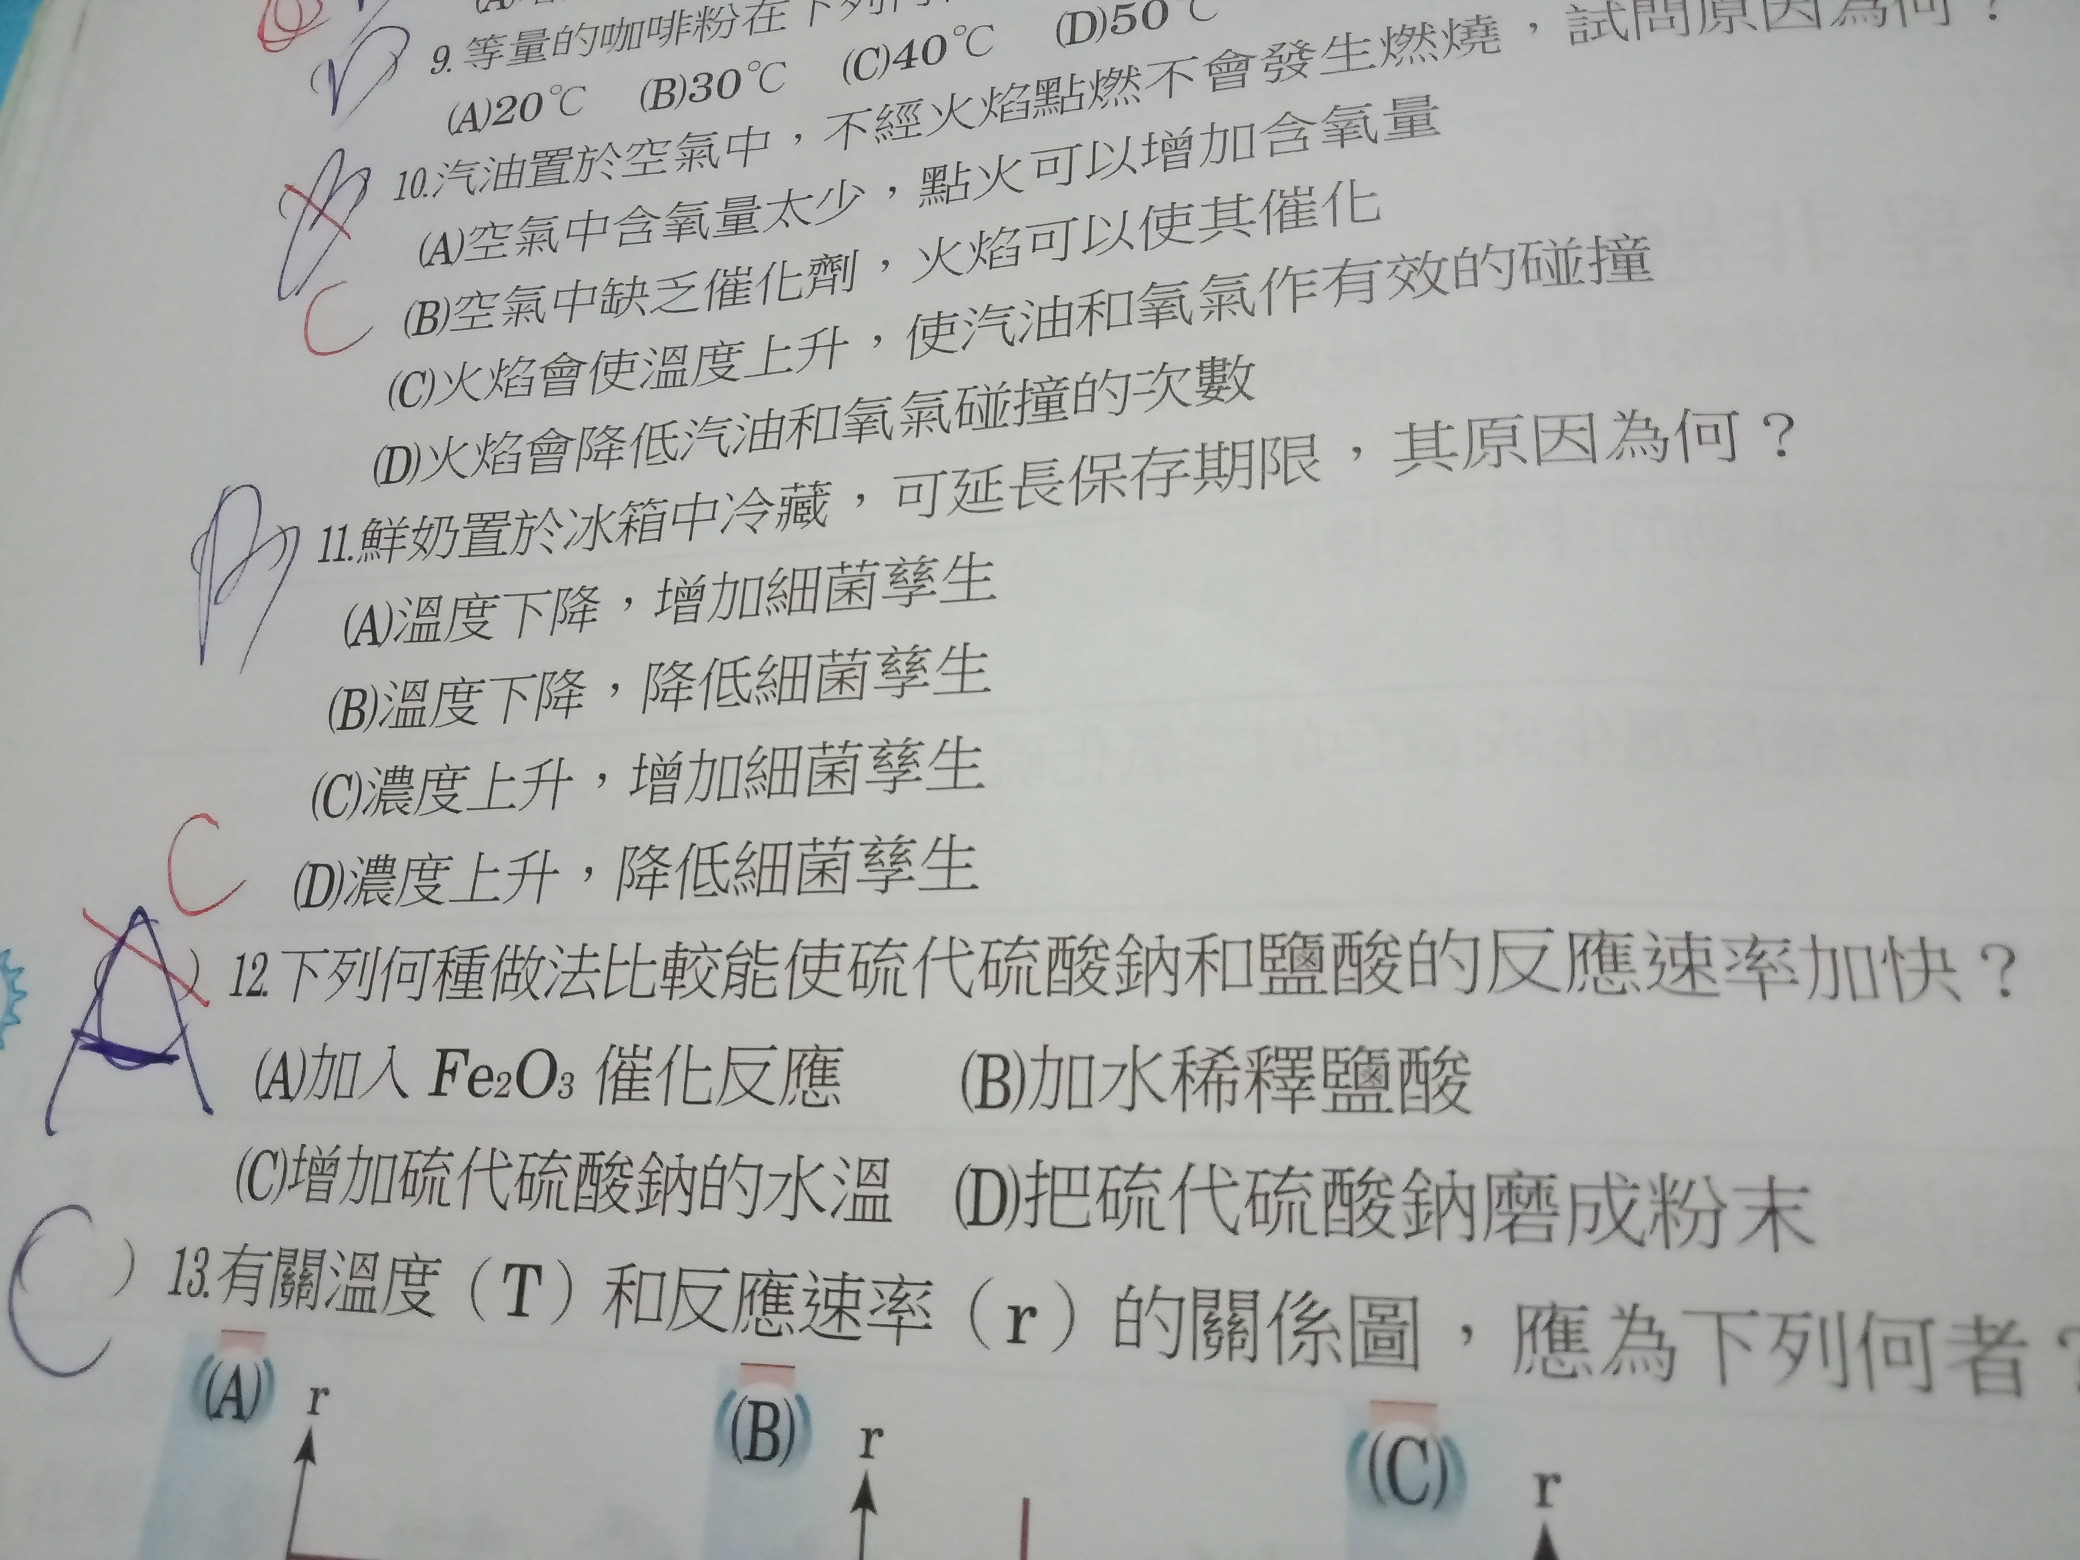 9.等量的咖啡粉在下列
(A)20℃ (B)30℃ (C)40℃ (D)50℃
10.汽油置於空氣中，不經火焰點燃不會發生燃燒，試問原因為何？
(A)空氣中含氧量太少，點火可以增加含氧量
(B)空氣中缺乏催化劑，火焰可以使其催化
C
(C)火焰會使溫度上升，使汽油和氧氣作有效的碰撞
(D)火焰會降低汽油和氧氣碰撞的次數
B
11.鮮奶置於冰箱中冷藏，可延長保存期限，其原因為何？
(A)溫度下降，增加細菌孳生
(B)溫度下降，降低細菌孳生
(C)濃度上升，增加細菌孳生
(D)濃度上升，降低細菌孳生
C
A ) 12.下列何種做法比較能使硫代硫酸鈉和鹽酸的反應速率加快？
(A)加入 Fe₂O₃ 催化反應 (B)加水稀釋鹽酸
(C)增加硫代硫酸鈉的水溫 (D)把硫代硫酸鈉磨成粉末
C ) 13.有關溫度（T）和反應速率（r）的關係圖，應為下列何者？
(A) r (B) r (C) r